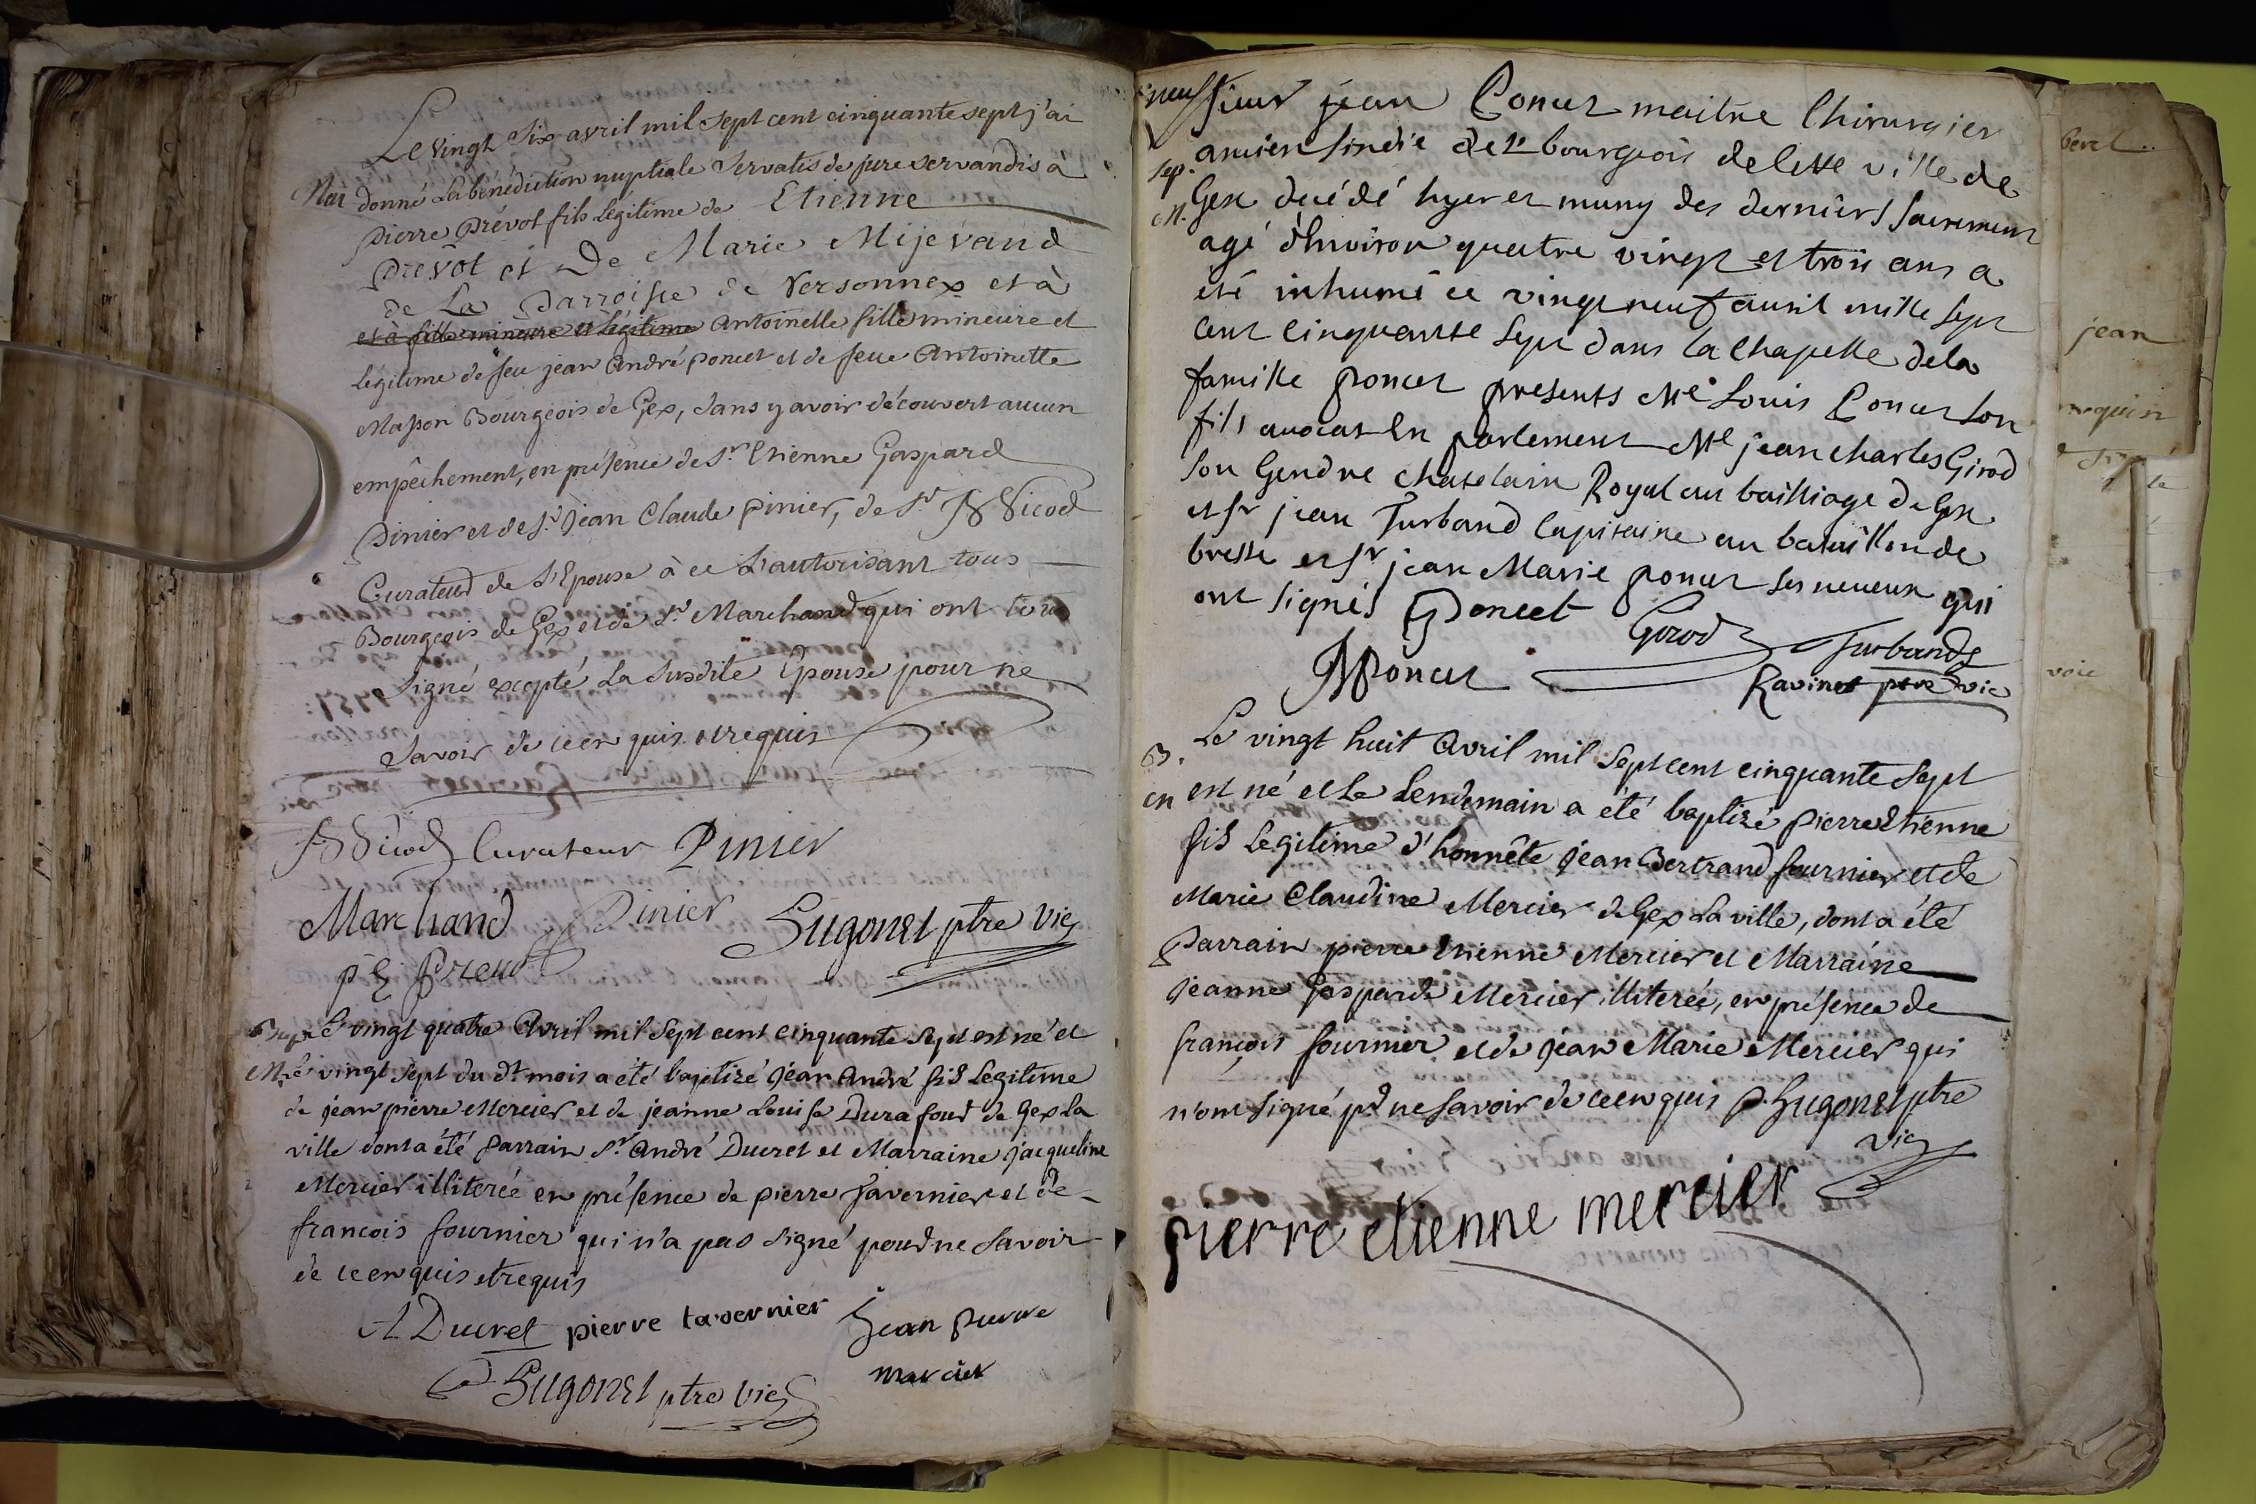 Le vingt Six avril mil sept cent cinquante sept j'ai
Mar donné La bénédiction nuptiale Servatis de jure servandis à
pierre prévot fils légitime de Etienne
prevot et De Marie Mijevand
de La parroisse de Versonnex et à
et à fille mineure et légitime Antoinette fille mineure et
légitime de feu jean André poncet et de feue Antoinette
Masson Bourgeois de Gex, sans y avoir découvert aucun
empêchement, en présence de Sr. Etienne Gaspard
pinier et de Sr. Jean Claude pinier, de Sr. Nicod
Curateur de L'Epouse à ce L'autorisant tous
Bourgeois de Gex et de Sr. Marchand qui ont tous
Signé excepté La Susdite Epouse pour ne
Savoir de ce enquis et requis
Nicod Curateur Pinier
Marchand Pinier Hugonet ptre Vic
Le vingt quatre Avril mil Sept cent cinquante Sept est né et
le vingt sept du dt mois a été baptizé jéan André fils Légitime
de jean pierre Mercier et de jeanne Louise Durafour de Gex La
ville dont a été parrain Sr. André Ducret et Marraine jacqueline
Mercier illiterée en présence de pierre tavernier et de
francois fournier qui n'a pas Signé pour ne Savoir
de ce enquis et requis
A Ducret pierre tavernier Jean pierre
mercier
Hugonet ptre Vic
Sieur jean Poncet maitre Chirurgien
ancien Sindic des bourgeois de cette ville de
Sep. Gex decédé hyer et muny des derniers Sacrements
agé d'Environ quatre vingt et trois ans a
eté inhumé ce vingt neuf avril mille Sept
cent Cinquante Sept dans la Chapelle de la
famille poncet presents Me Louis Poncet Son
fils avocat En parlement Me jean charles Girod
Son Gendre chatelain Royal au bailliage de Gex
et Sr jean Turband Capitaine au bataillon de
bresse et Sr jean Marie poncet ses neveux qui
ont signés Poncet Girod Turband
Poncet Ravinet ptre vic
B. Le vingt huit Avril mil Sept cent cinquante Sept
est né et Le Lendemain a été baptizé pierre Etienne
fils Legitime d'honnête Jean Bertrand fournier et de
Marie Claudine Mercier de Gex La ville, dont a été
parrain pierre Etienne Mercier et Marraine
jeanne Gasparde Mercier illiterée, en présence de
françois fournier et de Jean Marie Mercier qui
n'ont signé pr ne Savoir de ce enquis Hugonet ptre
Vic
pierre etienne mercier
jean
voie